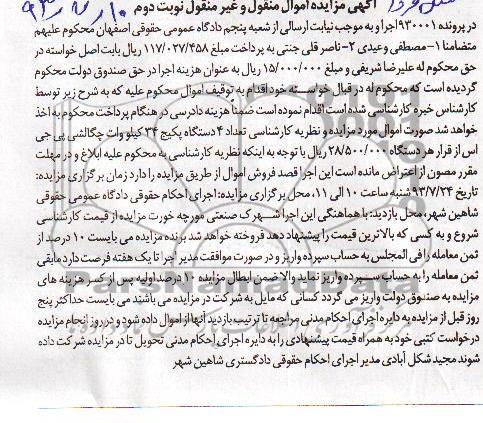 آگهی مزایده اموال منقول و غیر منقول نوبت دوم
در پرونده ۹۳۰۰۰۱ اجرا و به موجب نیابت ارسالی از شعبه پنجم دادگاه عمومی حقوقی اصفهان محکوم علیهم
متضامنا ۱- مصطفی وعیدی ۲- ناصر قلی جنتی به پرداخت مبلغ ۱۱۷/۰۲۷/۴۵۸ ریال بابت اصل خواسته در
حق محکوم له علیرضا شریفی و مبلغ ۱۵/۰۰۰/۰۰۰ ریال به عنوان هزینه اجرا در حق صندوق دولت محکوم
گردیده است که محکوم له در قبال خواسته خود اقدام به توقیف اموال محکوم علیه که به شرح زیر توسط
کارشناس خبره کارشناسی شده است اقدام نموده است ضمناً هزینه دادرسی در هنگام پرداخت محکوم به اخذ
خواهد شد صورت اموال مورد مزایده و نظریه کارشناسی تعداد ۴ دستگاه پکیج ۲۴ کیلو وات چگالشی پی جی
اس از قرار هر دستگاه ۲۸/۵۰۰/۰۰۰ ریال با توجه به اینکه نظریه کارشناسی به محکوم علیه ابلاغ و در مهلت
مقرر مصون از اعتراض مانده است این اجرا قصد فروش اموال از طریق مزایده را دارد زمان برگزاری مزایده:
تاریخ ۹۳/۷/۲۴ شنبه ساعت ۱۰ الی ۱۱، محل برگزاری مزایده: اجرای احکام حقوقی دادگاه عمومی حقوقی
شاهین شهر، محل بازدید: با هماهنگی این اجرا شهرک صنعتی مورچه خورت مزایده از قیمت کارشناسی
شروع و به کسی که بالاترین قیمت را پیشنهاد دهد فروخته خواهد شد برنده مزایده می بایست ۱۰ درصد از
ثمن معامله را فی المجلس به حساب سپرده واریز و در صورت موافقت مدیر اجرا تا یک هفته فرصت دارد مابقی
ثمن معامله را به حساب سپرده واریز نماید والا ضمن ابطال مزایده ۱۰ درصد اولیه پس از کسر هزینه های
مزایده به صندوق دولت واریز می گردد کسانی که مایل به شرکت در مزایده می باشند می بایست حداکثر پنج
روز قبل از مزایده به دایره اجرای احکام مدنی مراجعه تا ترتیب بازدید آنها از اموال داده شود و در روز انجام مزایده
درخواست کتبی خود به همراه قیمت پیشنهادی را به دایره اجرای احکام مدنی تحویل تا در مزایده شرکت داده
شوند مجید شکل آبادی مدیر اجرای احکام حقوقی دادگستری شاهین شهر